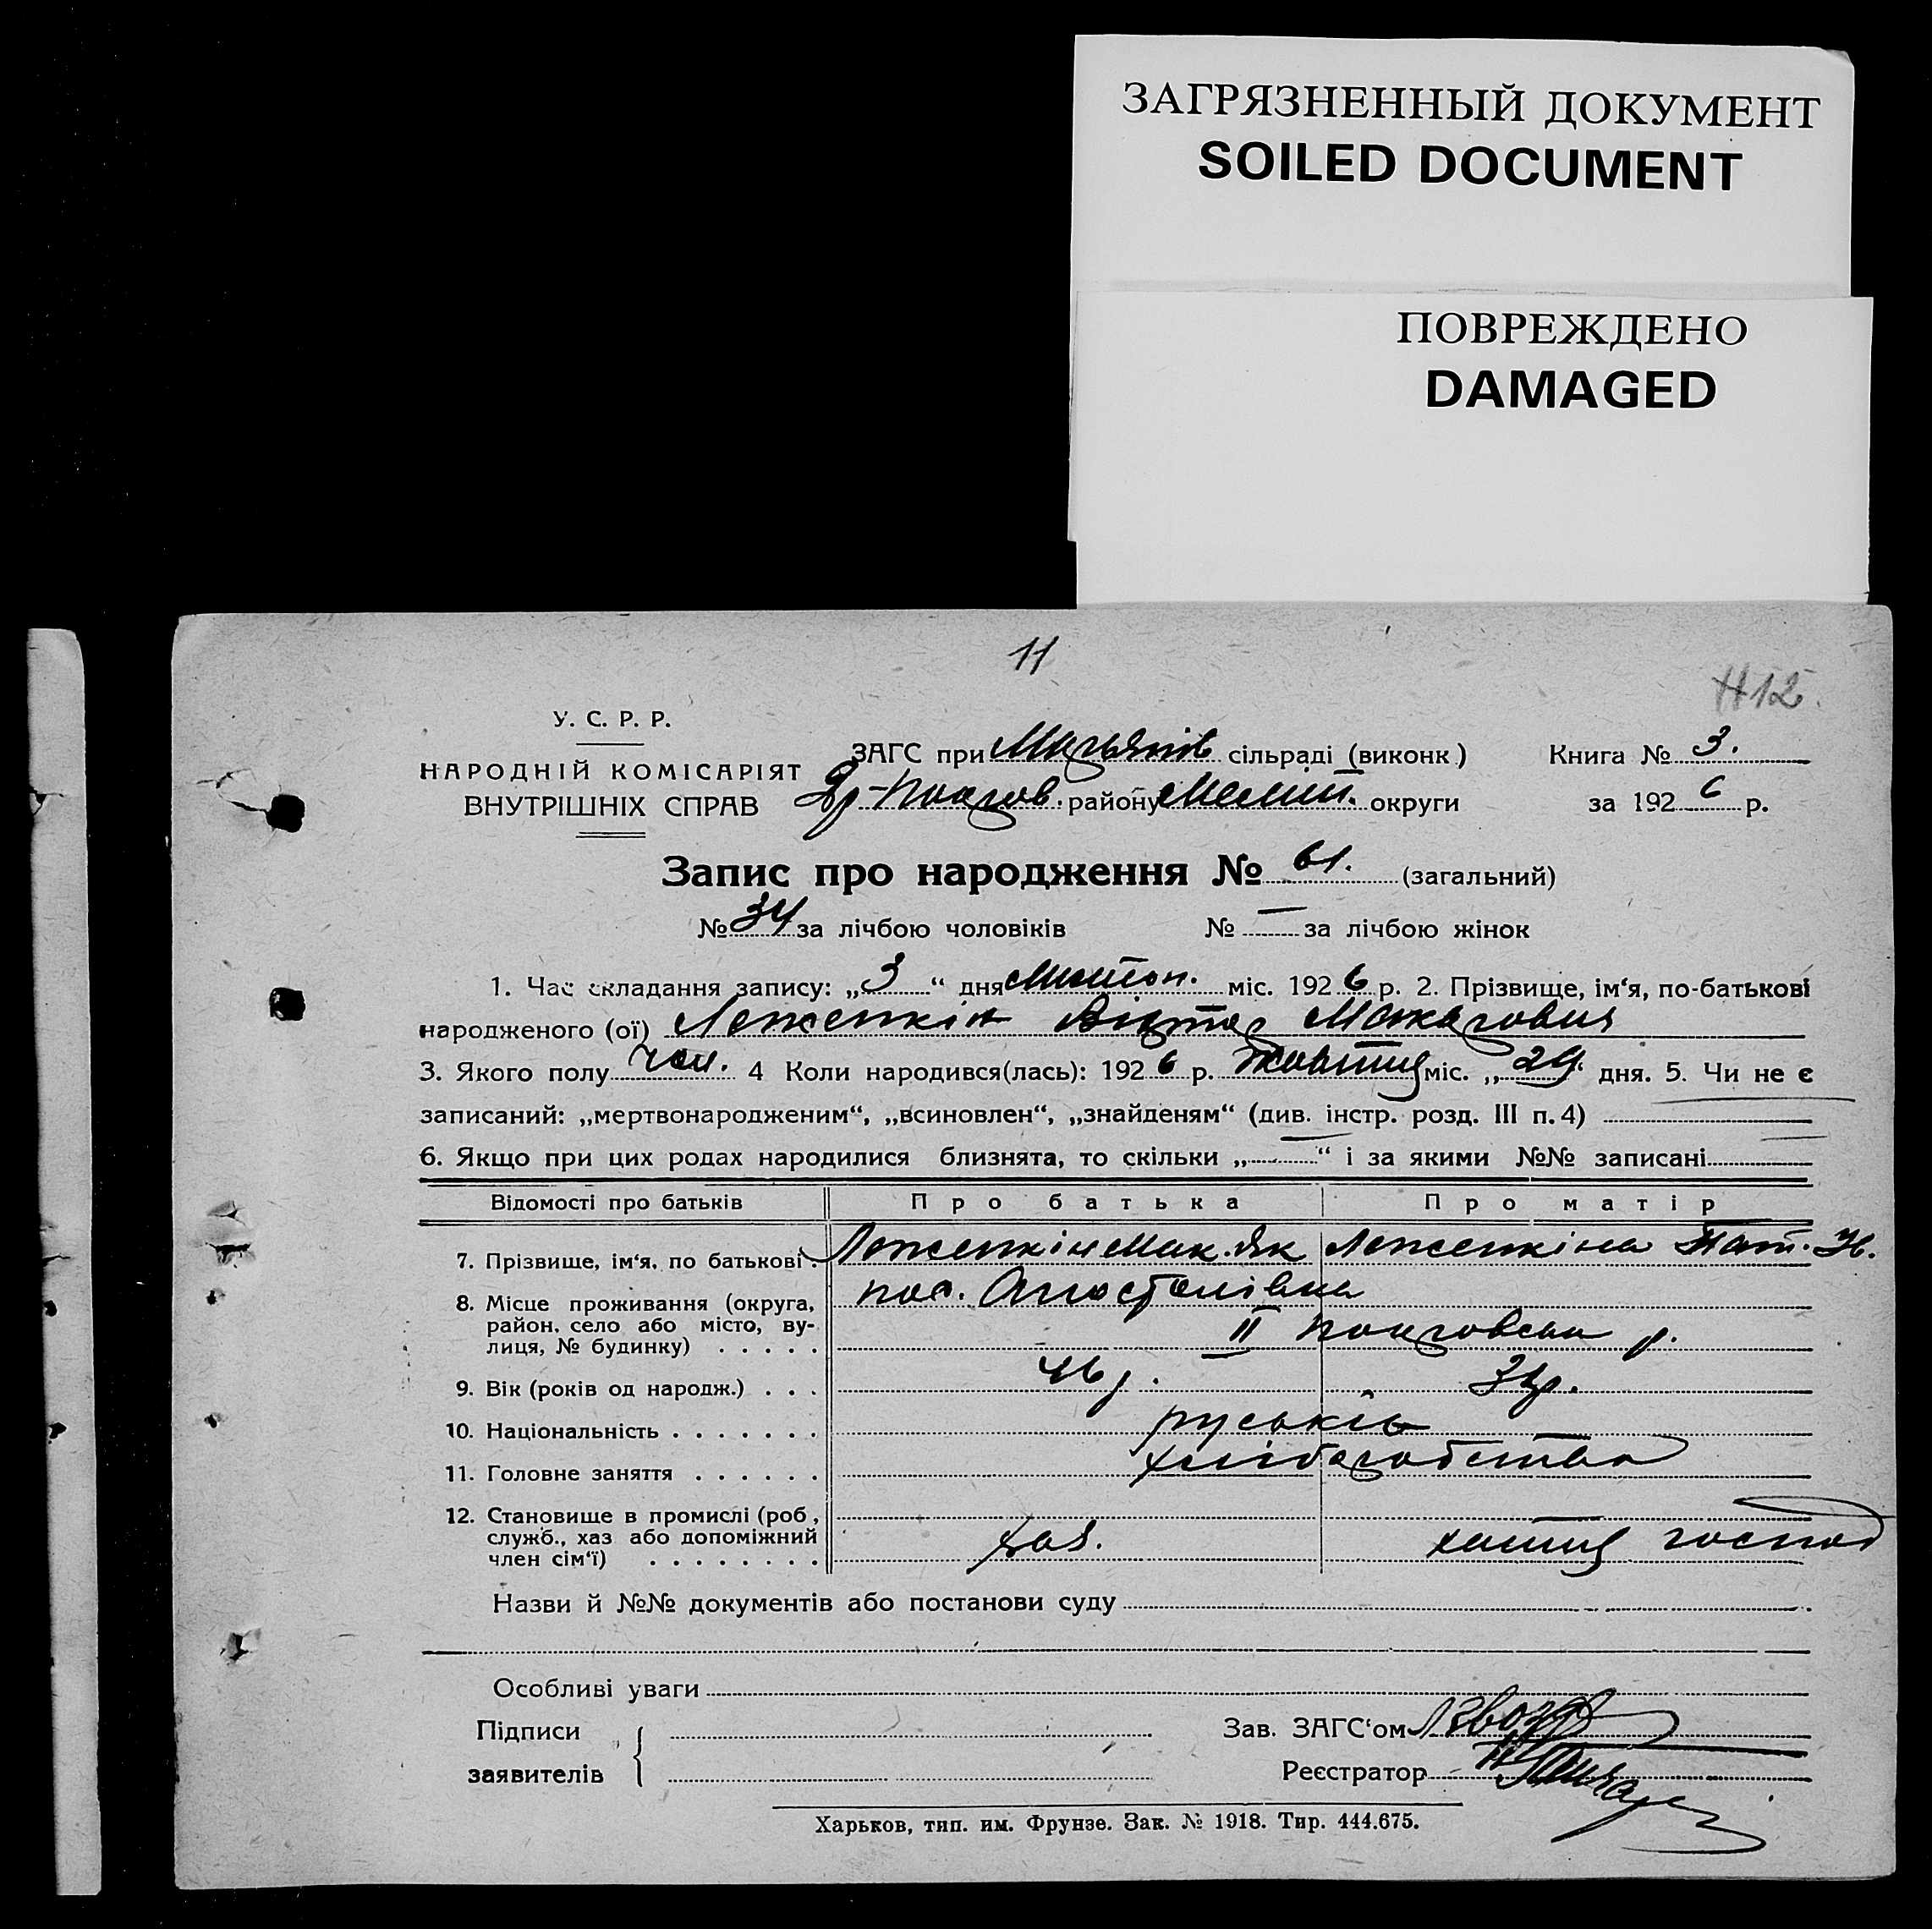 ЗАГРЯЗНЕННЫЙ ДОКУМЕНТ
SOILED DOCUMENT
ПОВРЕЖДЕНО
DAMAGED
11
12.
У. С. Р. Р.
НАРОДНІЙ КОМІСАРІЯТ
ВНУТРІШНІХ СПРАВ
ЗАГС при сільраді (виконк)
Книга № 3.
району округи
за 1926 р.
Запис про народження № 61. (загальний)
№ 34 за лічбою чоловіків № — за лічбою жінок
1. Час складання запису: „3“ дня міс. 1926 р. 2. Прізвище, ім‘я, по-батькові
народженого (ої) Макарович
3. Якого полу чол. 4 Коли народився(лась): 1926 р. міс. „29“ дня. 5. Чи не є
записаний: „мертвонародженим“, „всиновлен“, „знайденям“ (див. інстр. розд. III п. 4)
6. Якщо при цих родах народилися близнята, то скільки „—“ і за якими №№ записані
Відомості про батьків Про батька Про матір
7. Прізвище, ім‘я, по батькові. Мак. Як
8. Місце проживання (округа, пос. Апостолівка
район, село або місто, ву-
лиця, № будинку) . . . . . II
9. Вік (років од народж.) . . . 46 р.
10. Національність . . . . . . . руські
11. Головне заняття . . . . . . хліборобство
12. Становище в промислі (роб,
служб., хаз або допоміжний хаз. господ
член сім‘ї) . . . . . . . .
Назви й №№ документів або постанови суду
Особливі уваги
Підписи
заявителів
Зав. ЗАГС‘ом
Реєстратор
Харьков, тип. им. Фрунзе. Зак. № 1918. Тир. 444.675.